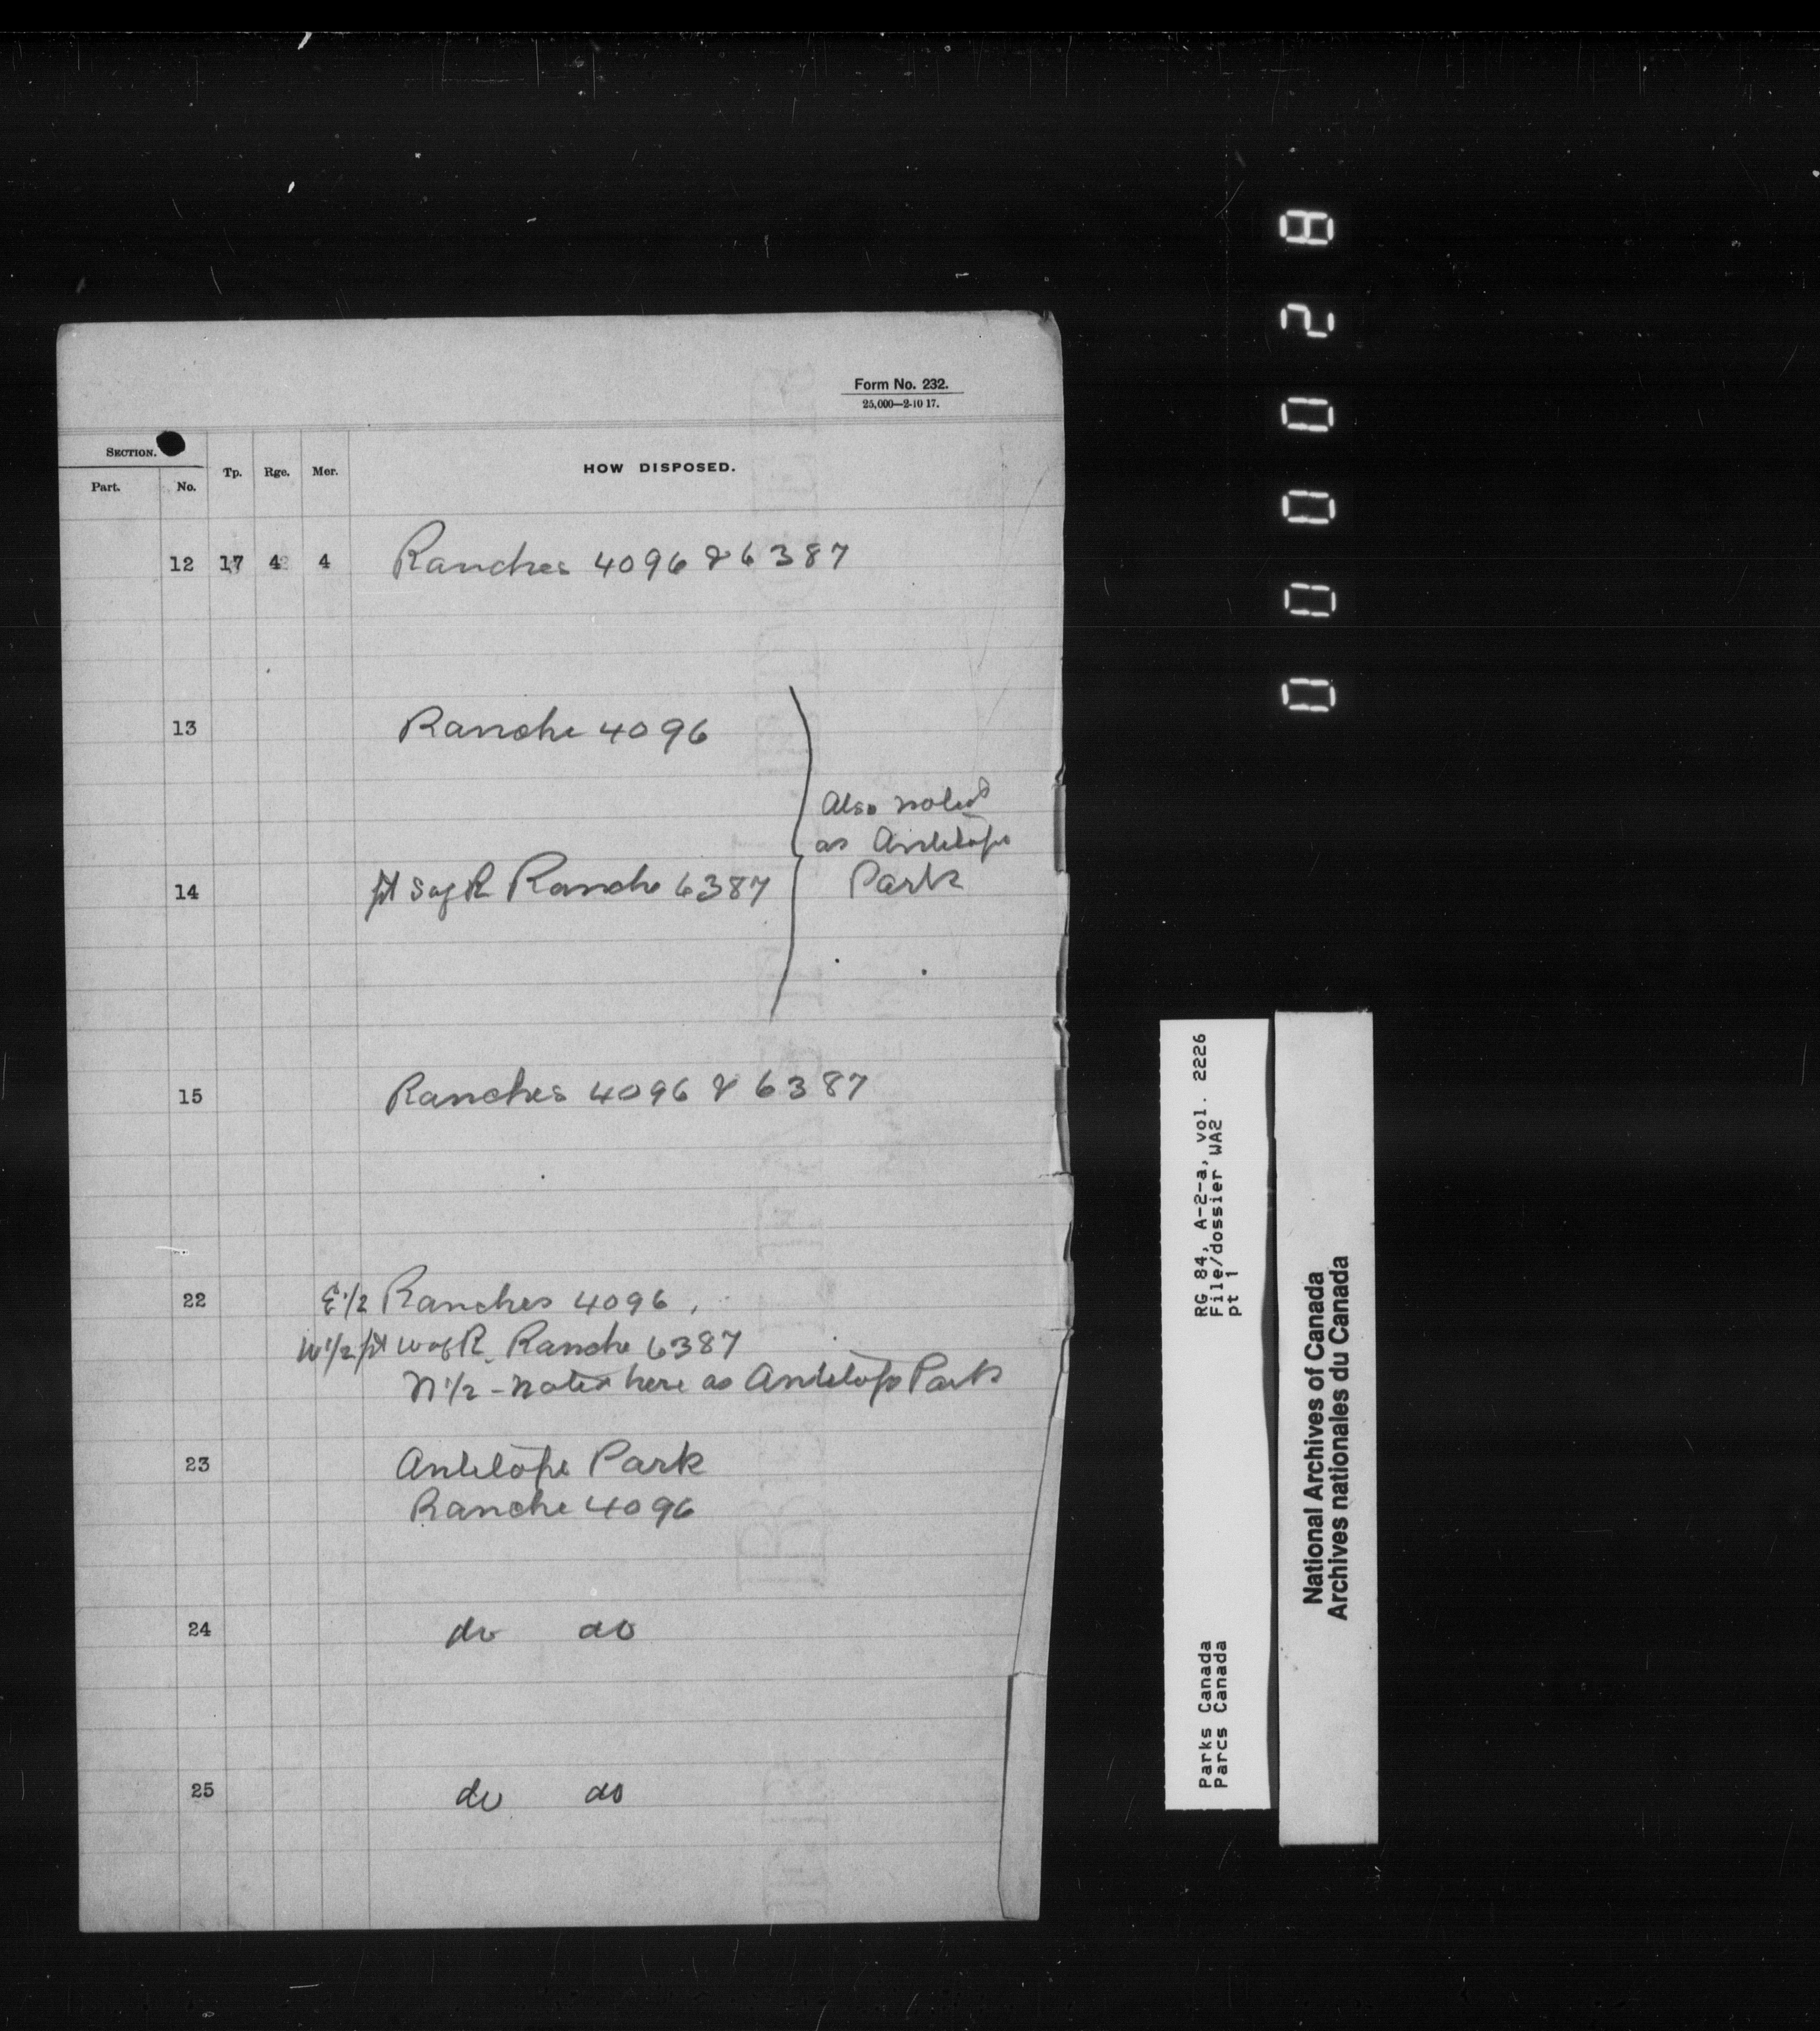 Form No. 232.
25,000—2-10 17.
SECTION. Tp. Rge. Mer. HOW DISPOSED.
Part. No.
12 17 4 4 Ranches 4096 & 6387
13 Ranche 4096
Also noted
as Antelope
Park
14 pt S of R Ranche 6387
15 Ranches 4096 & 6387
22 E 1/2 Ranches 4096,
W 1/2 pt W of R. Ranche 6387
N 1/2 - noted here as Antelope Park
23 Antelope Park
Ranche 4096
24 do do
25 do do
000028
RG 84, A-2-a, vol. 2226
File/dossier WA2
pt 1
Parks Canada
Parcs Canada
National Archives of Canada
Archives nationales du Canada